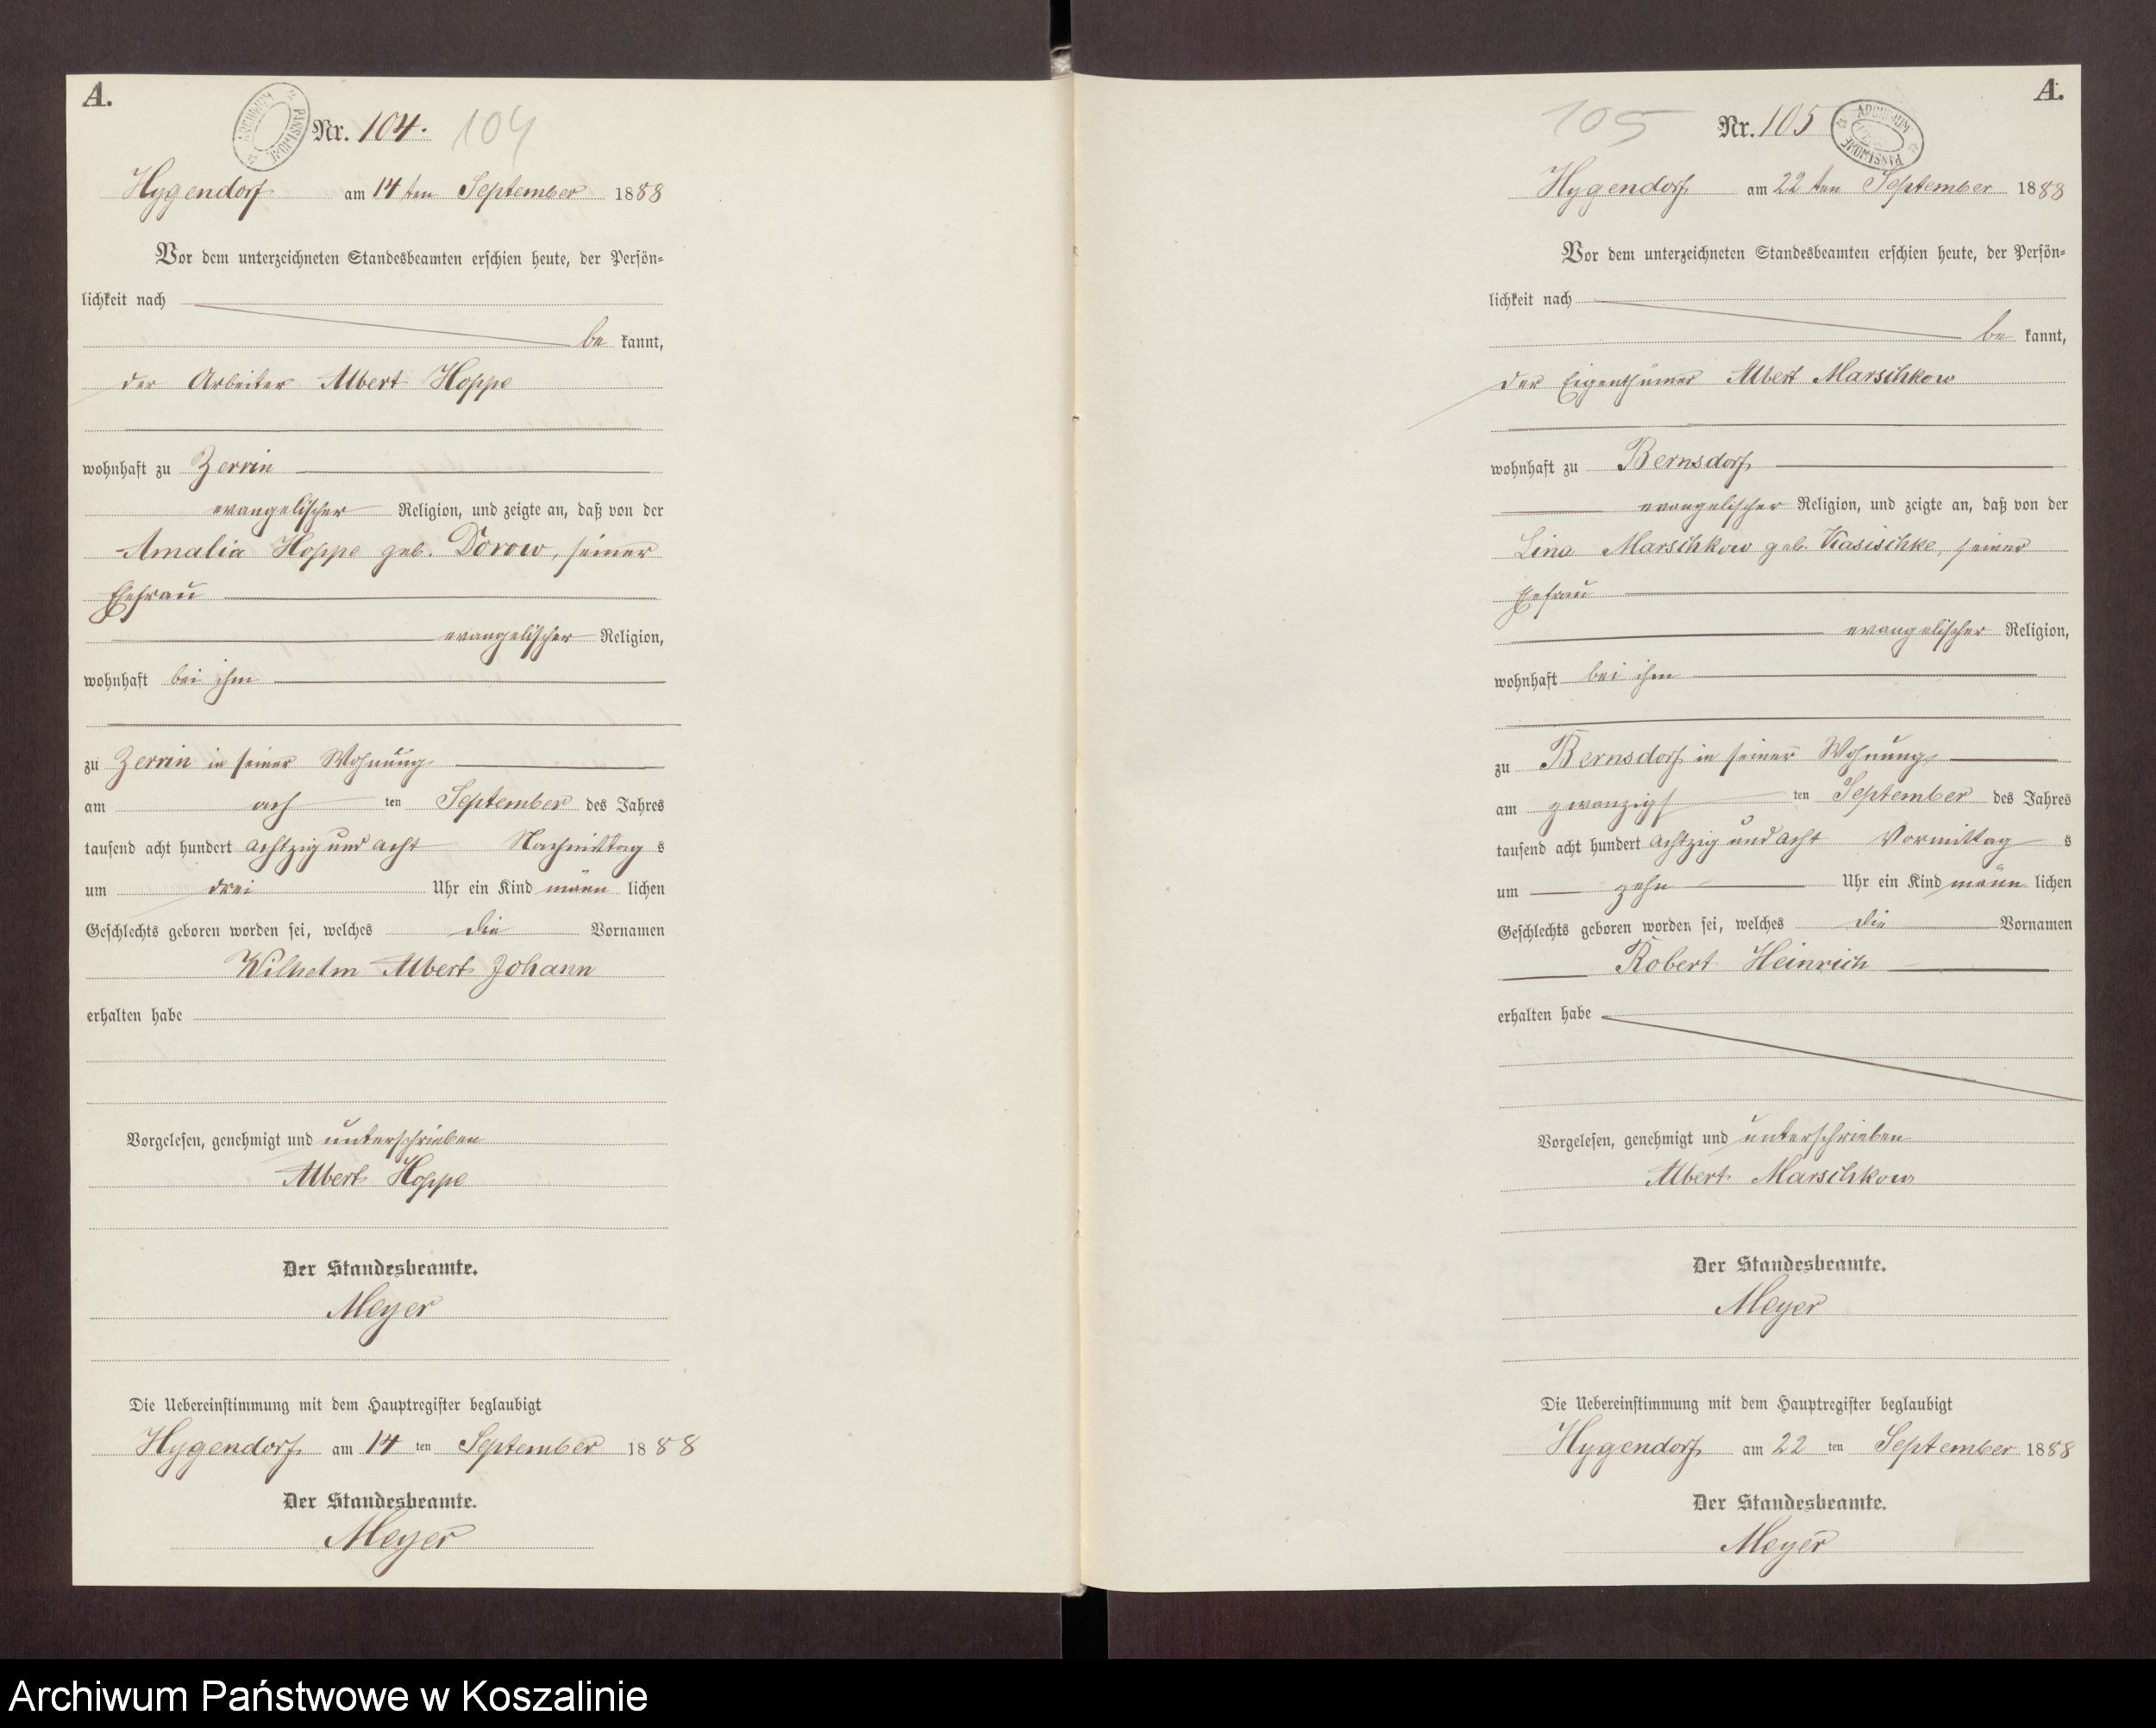 A.
ARCHIWUM PAŃSTWOWE
Nr. 104. 104
Hygendorf am 14 ten September 1888
Vor dem unterzeichneten Standesbeamten erschien heute, der Persön-
lichkeit nach
be kannt,
der Arbeiter Albert Hoppe
wohnhaft zu Zerrin
evangelischer Religion, und zeigte an, daß von der
Amalia Hoppe geb. Dorow, seiner
Ehefrau
evangelischer Religion,
wohnhaft bei ihm
zu Zerrin in seiner Wohnung
am ach ten September des Jahres
tausend acht hundert achtzig und acht Nachmittag s
um drei Uhr ein Kind männ lichen
Geschlechts geboren worden sei, welches die Vornamen
Wilhelm Albert Johann
erhalten habe
Vorgelesen, genehmigt und unterschrieben
Albert Hoppe
Der Standesbeamte.
Meyer
Die Uebereinstimmung mit dem Hauptregister beglaubigt
Hygendorf am 14 ten September 1888
Der Standesbeamte.
Meyer
A.
105 Nr. 105
ARCHIWUM PAŃSTWOWE
Hygendorf am 22 ten September 1888
Vor dem unterzeichneten Standesbeamten erschien heute, der Persön-
lichkeit nach
be kannt,
der Eigenthümer Albert Marschkow
wohnhaft zu Bernsdorf
evangelischer Religion, und zeigte an, daß von der
Lina Marschkow geb. Kasischke, seiner
Ehefrau
evangelischer Religion,
wohnhaft bei ihm
zu Bernsdorf in seiner Wohnung
am zwanzigs ten September des Jahres
tausend acht hundert achtzig und acht Vormittag s
um zehn Uhr ein Kind männ lichen
Geschlechts geboren worden sei, welches die Vornamen
Robert Heinrich
erhalten habe
Vorgelesen, genehmigt und unterschrieben
Albert Marschkow
Der Standesbeamte.
Meyer
Die Uebereinstimmung mit dem Hauptregister beglaubigt
Hygendorf am 22 ten September 1888
Der Standesbeamte.
Meyer
Archiwum Państwowe w Koszalinie